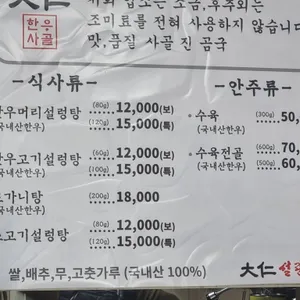 한우
사골
조미료를 전혀 사용하지 않습니
맛,품질 사골 진 곰국
- 식사류 -
우머리설렁탕 (80g) 12,000(보)
(국내산한우) (120g) 15,000(특)
우고기설렁탕 (60g) 12,000(보)
(국내산한우) (100g) 15,000(특)
가니탕 (200g) 18,000
고기설렁탕 (80g) 12,000
(120g) 15,000(특)
- 안주류 -
* 수육 (300g) 50,
(국내산한우)
* 수육전골 (600g) 70,
(국내산한우) (500g) 60,
쌀,배추,무,고춧가루 (국내산 100%)
大仁 설렁